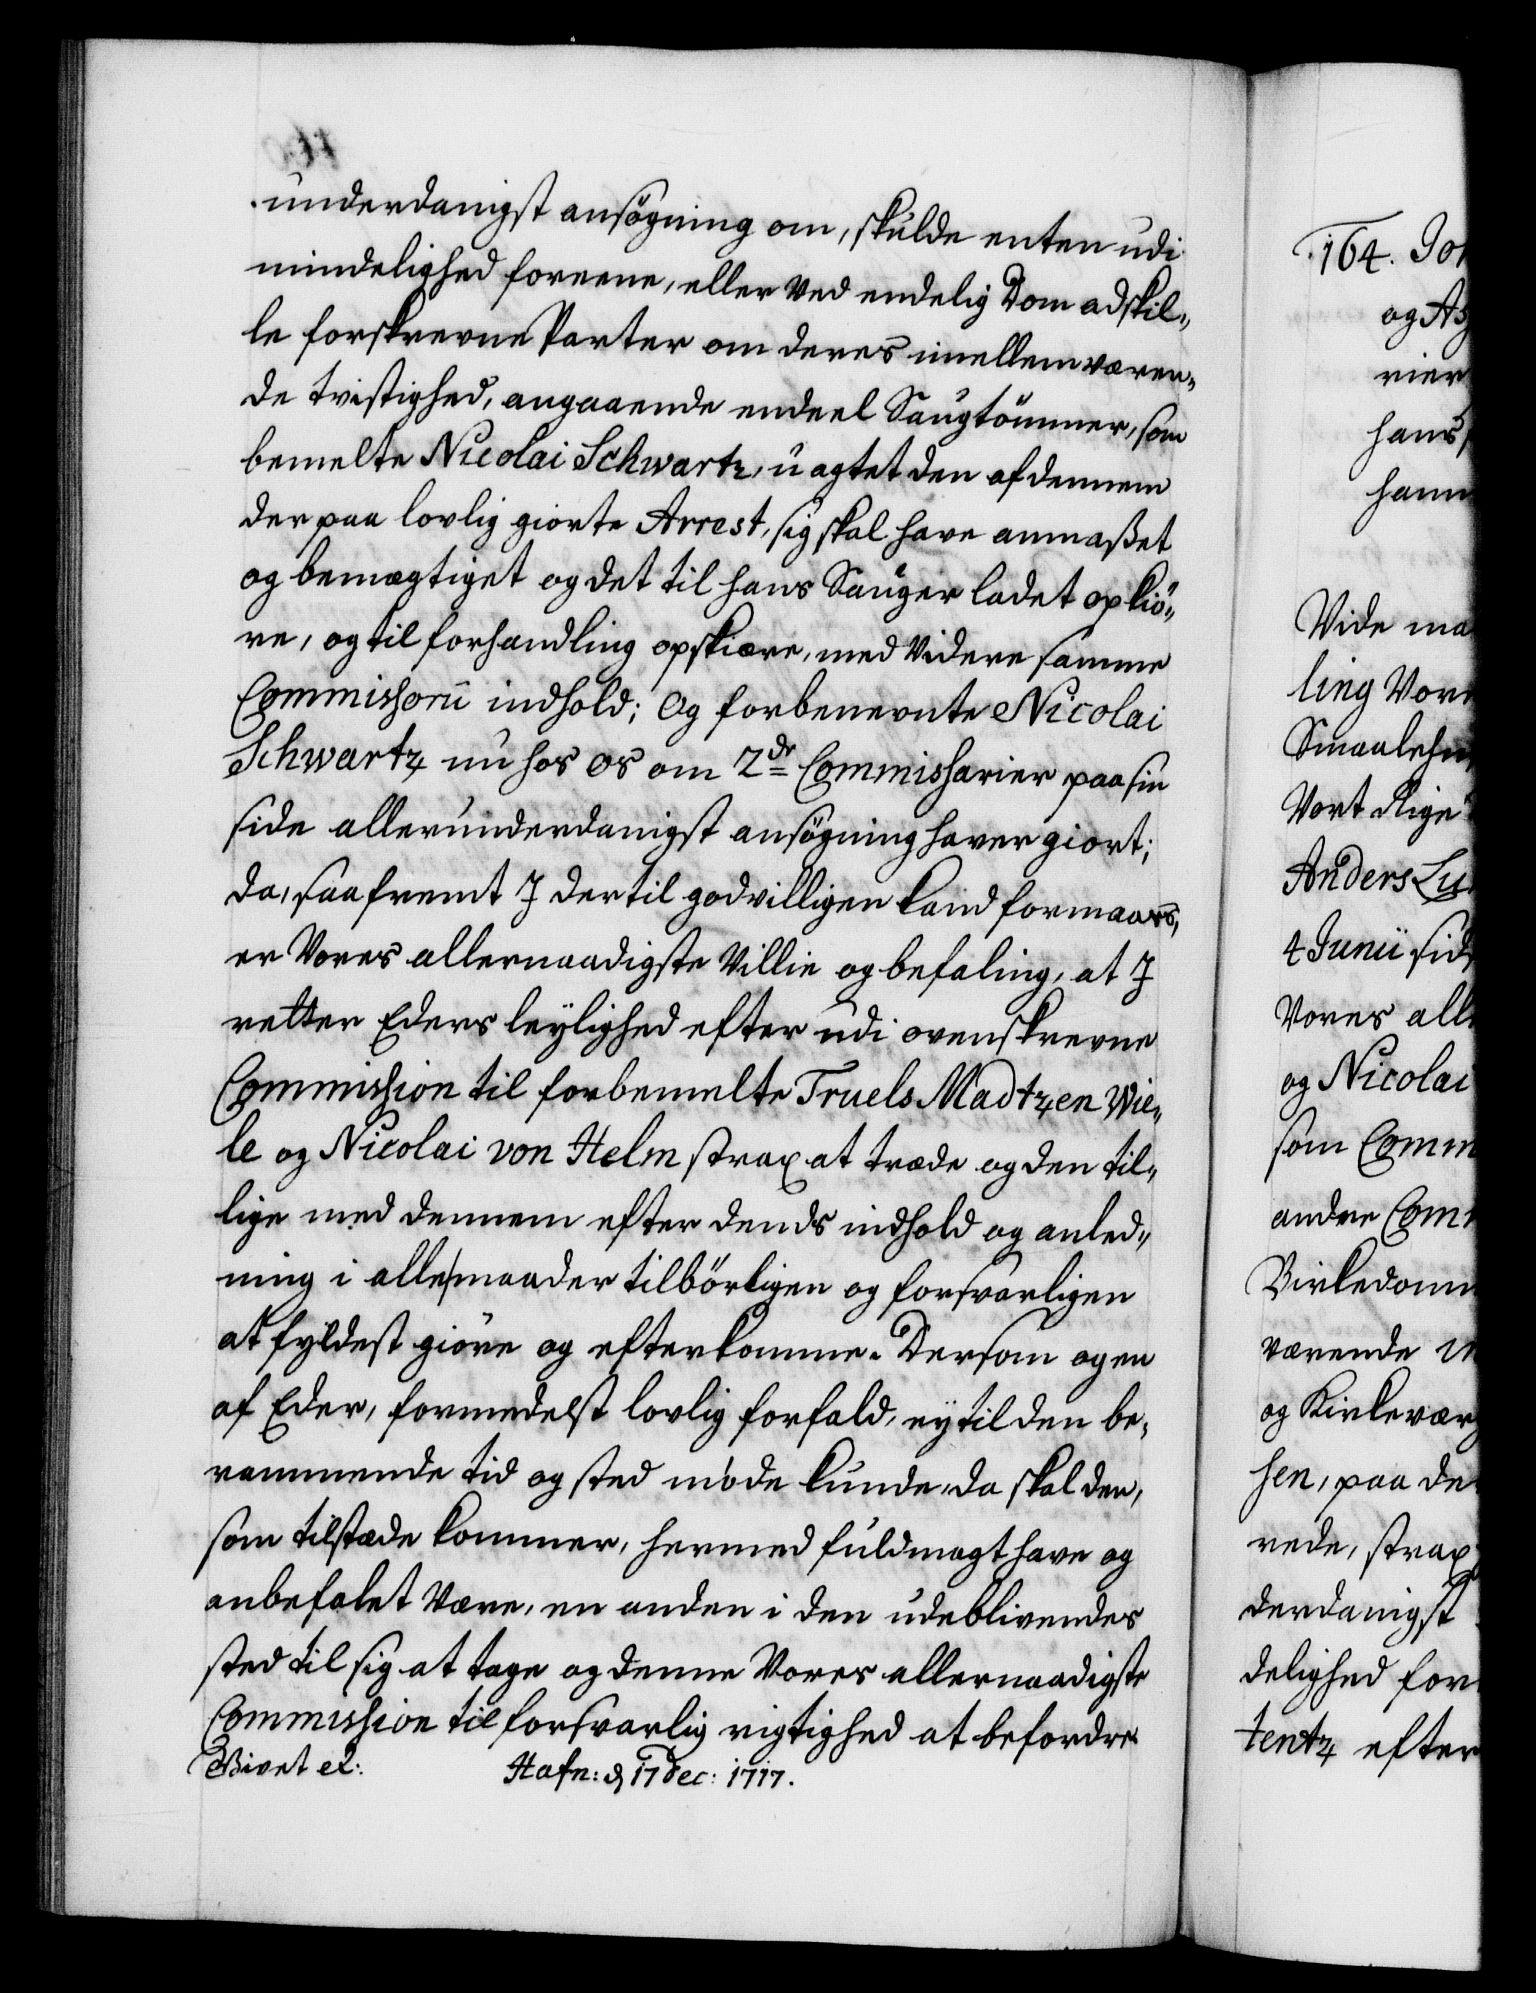 underdanigst ansögning om, skulde enten udi
mindelighed foreene, eller ved endelig Dom adskil„
le forskrevne Parter om deres imellemværen„
de tvistighed, angaaende endeel Saugtömmer, som
bemelte Nicolai Schwartz, uagtet den af dennem
der paa lovlig giorte Arrest, sig skal have anmaßet
og bemægtiget og det til hans Sauger ladet opkiö„
re, og til forhandling opskiære, med videre samme
Commissorii indhold; Og forbenevnte Nicolai
Schwartz nu hos os om 2de Commissarier paa sin
side allerunderdanigst ansögning haver giort;
da, saafremt I dertil godvilligen kand formaaes,
er Vores allernaadigste Villie og befaling, at I
retter Eders leylighed efter udi ovenskrevne
Commission til forbemelte Truels Madtzen Wie„
le og Nicolai von Helm strax at træde og den til„
lige med dennem efter dends indhold og anled„
ning i alle maader tilbörligen og forsvarligen
at fyldest giöre og efterkomme. Dersom og en
af Eder, formedelst lovlig forfald, ey til den be„
rammende tid og sted möde kunde, da skal den,
som tilstæde kommer, hermed fuldmagt have og
anbefalet være, en anden i den udeblivendes
sted til sig at tage og denne Vores allernaadigste
Commission til forsvarlig rigtighed at befordre
Bivet el: Hafn: d 17 Dec: 1717.
164. Jo
og As
rier
hans
hann
Vide ma
ling Vor
Smaalehn
Vort Rige
Anders Ly
4 Junii sid
Vores all
og Nicolai
som Comm
andre Com
Birkedom
værende
og Kirkevær
sen, paa de
rede, strax
derdanigst
delighed for
tentz efter